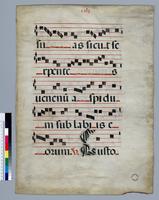 su as sicut se
rpente s
uenenū aspidu
m sub labiis e
orum. V. Custo